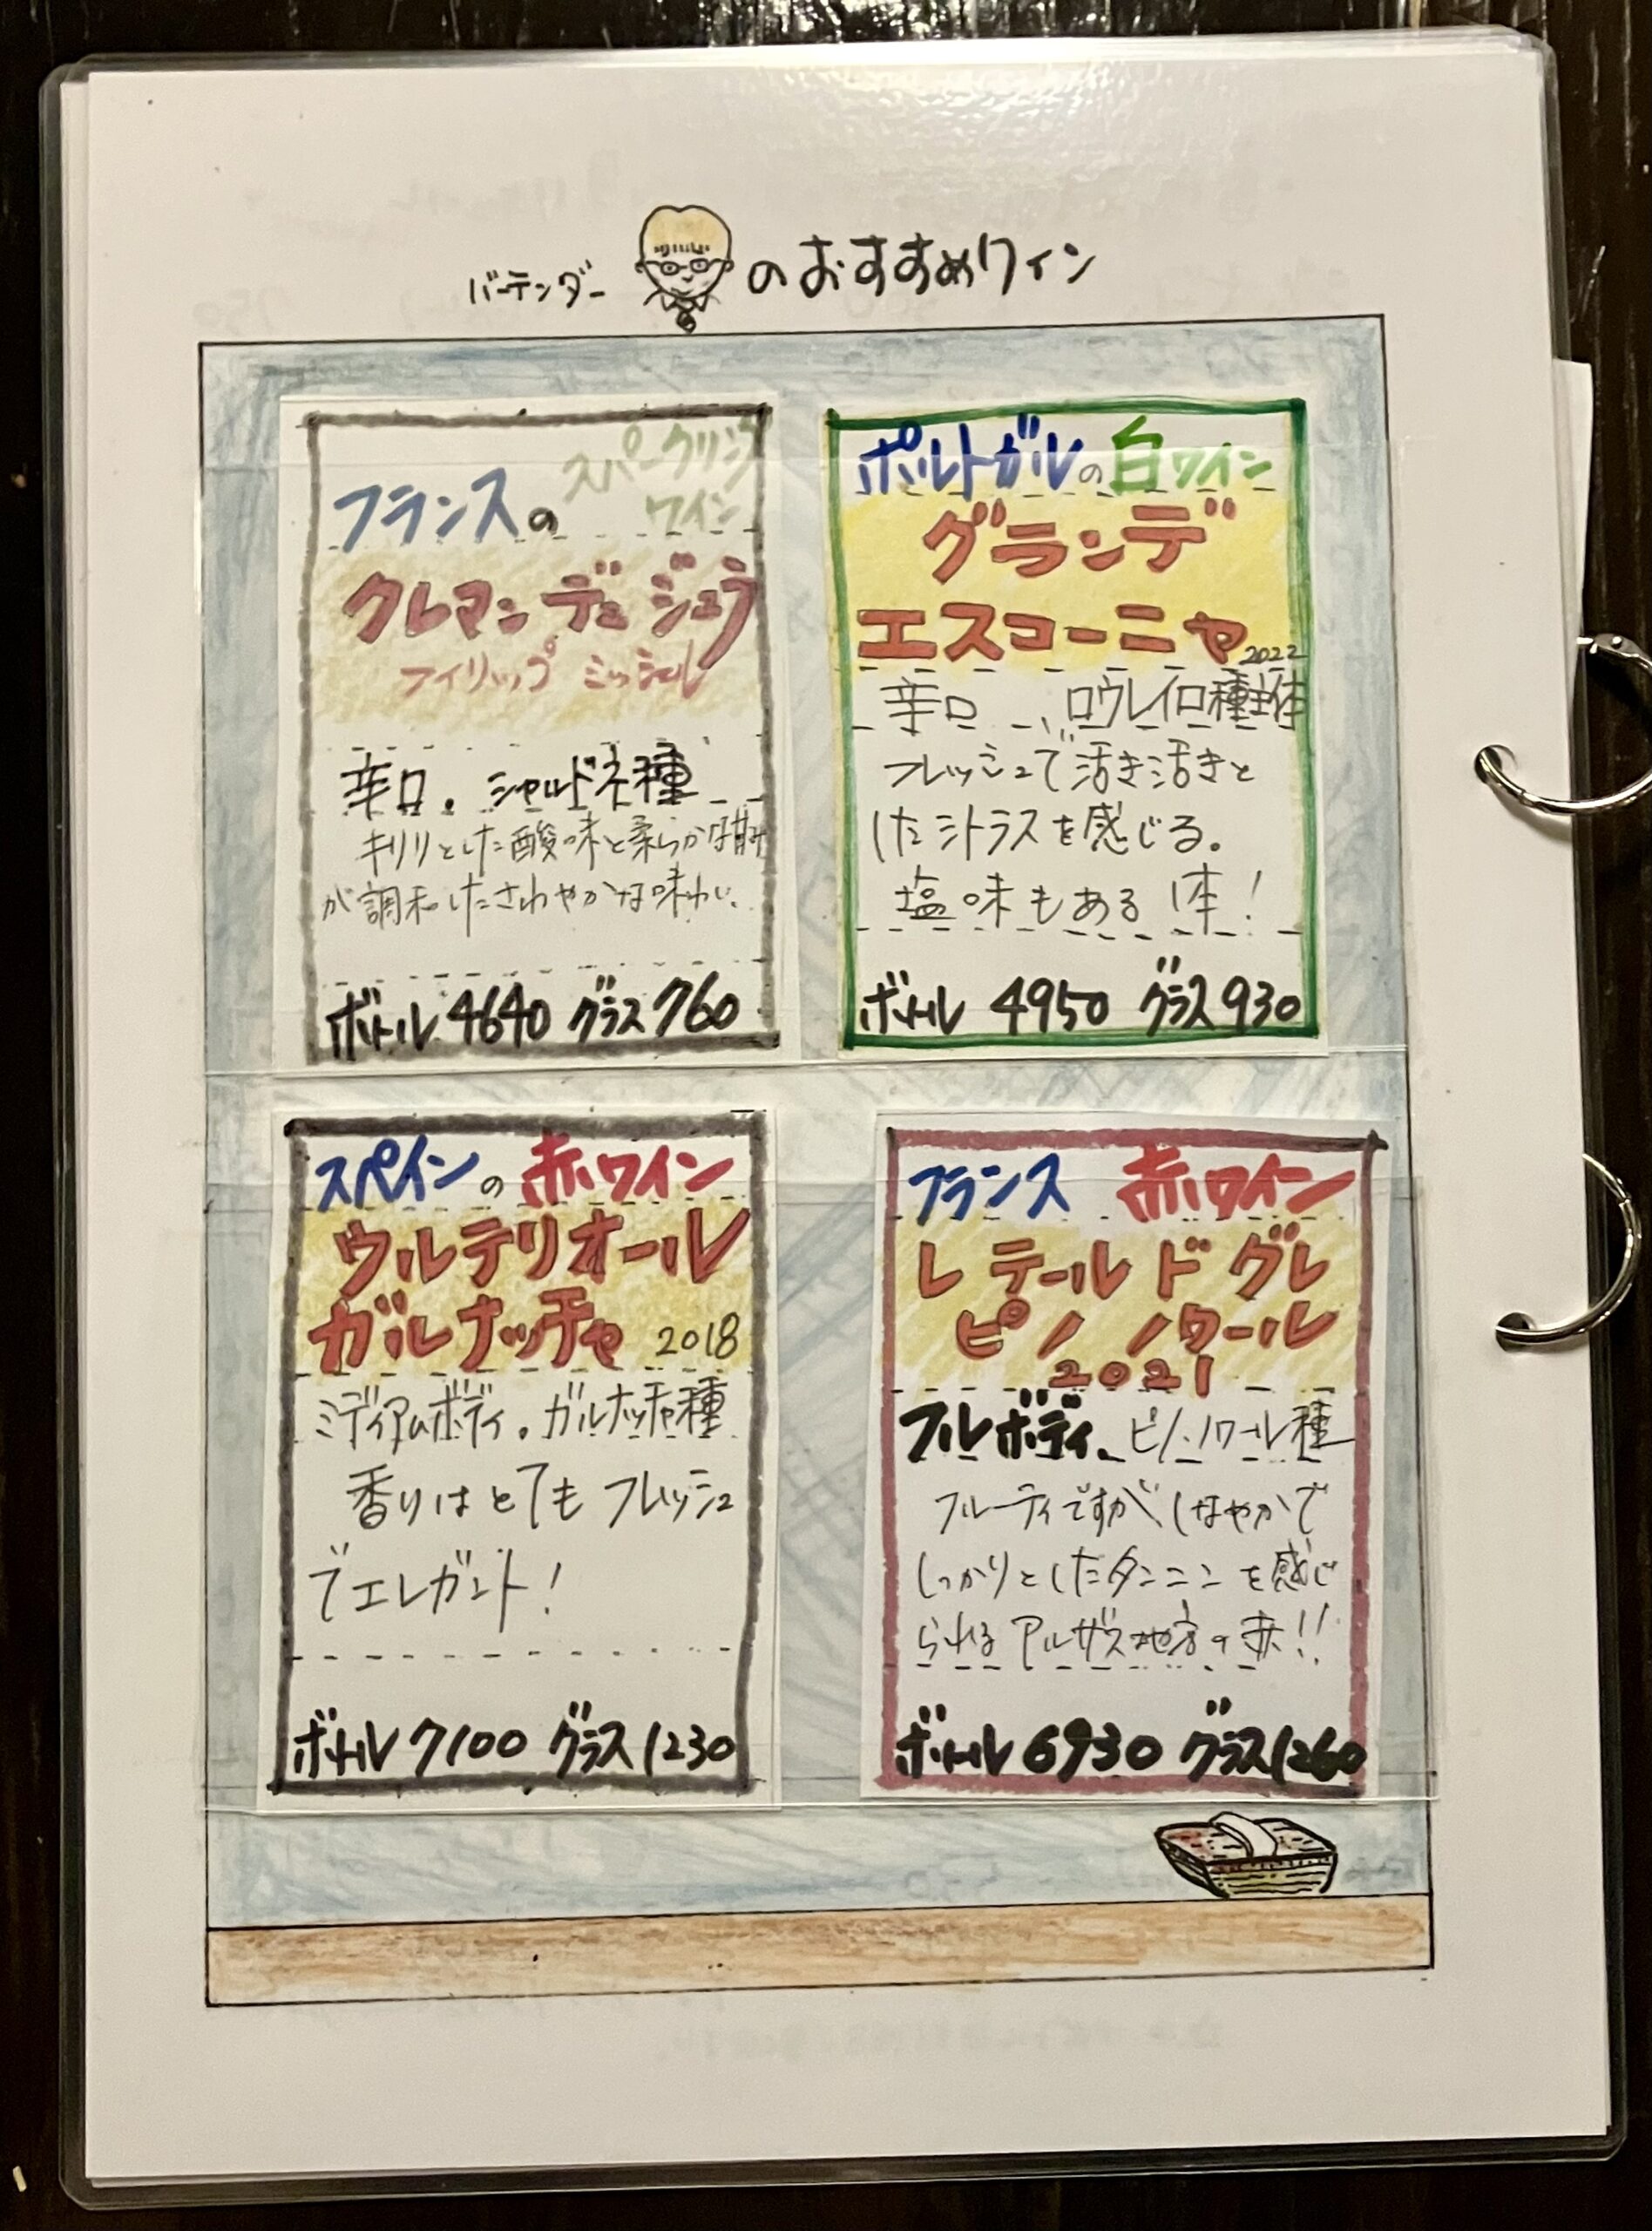 バーテンダー のおすすめワイン
フランスの スパークリング
ワイン
クレマン デュ ジュラ
フィリップ ミッシェル
辛口. シャルドネ種
キリリとした酸味と柔らかな甘み
が調和したさわやかな味わい.
ボトル 4640 グラス 760
ポルトガルの白ワイン
グランデ
エスコーニャ 2022
辛口 、ロウレイロ種主体
フレッシュで活き活きと
したシトラスを感じる。
塩味もある1本!
ボトル 4950 グラス 930
スペインの赤ワイン
ウルテリオール
ガルナッチャ 2018
ミディアムボディ. ガルナッチャ種
香りはとてもフレッシュ
でエレガント!
ボトル 7100 グラス 1230
フランス 赤ワイン
レ テール ド グレ
ピノ ノワール
2021
フルボディ、ピノ・ノワール種
フルーティですが しなやかで
しっかりとしたタンニンを感じ
られるアルザス地方の赤!!
ボトル 6930 グラス 1260